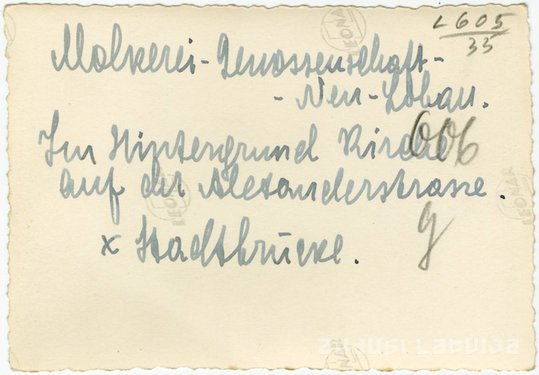 L 605
35
Molkerei-Genossenschaft-
- Neu-Löbau.
Im Hintergrund Kirche
auf der Alexanderstrasse.
x Stadtbrücke.
606
g
LEONAR
LEONAR
LEONAR
Zudusi Latvija